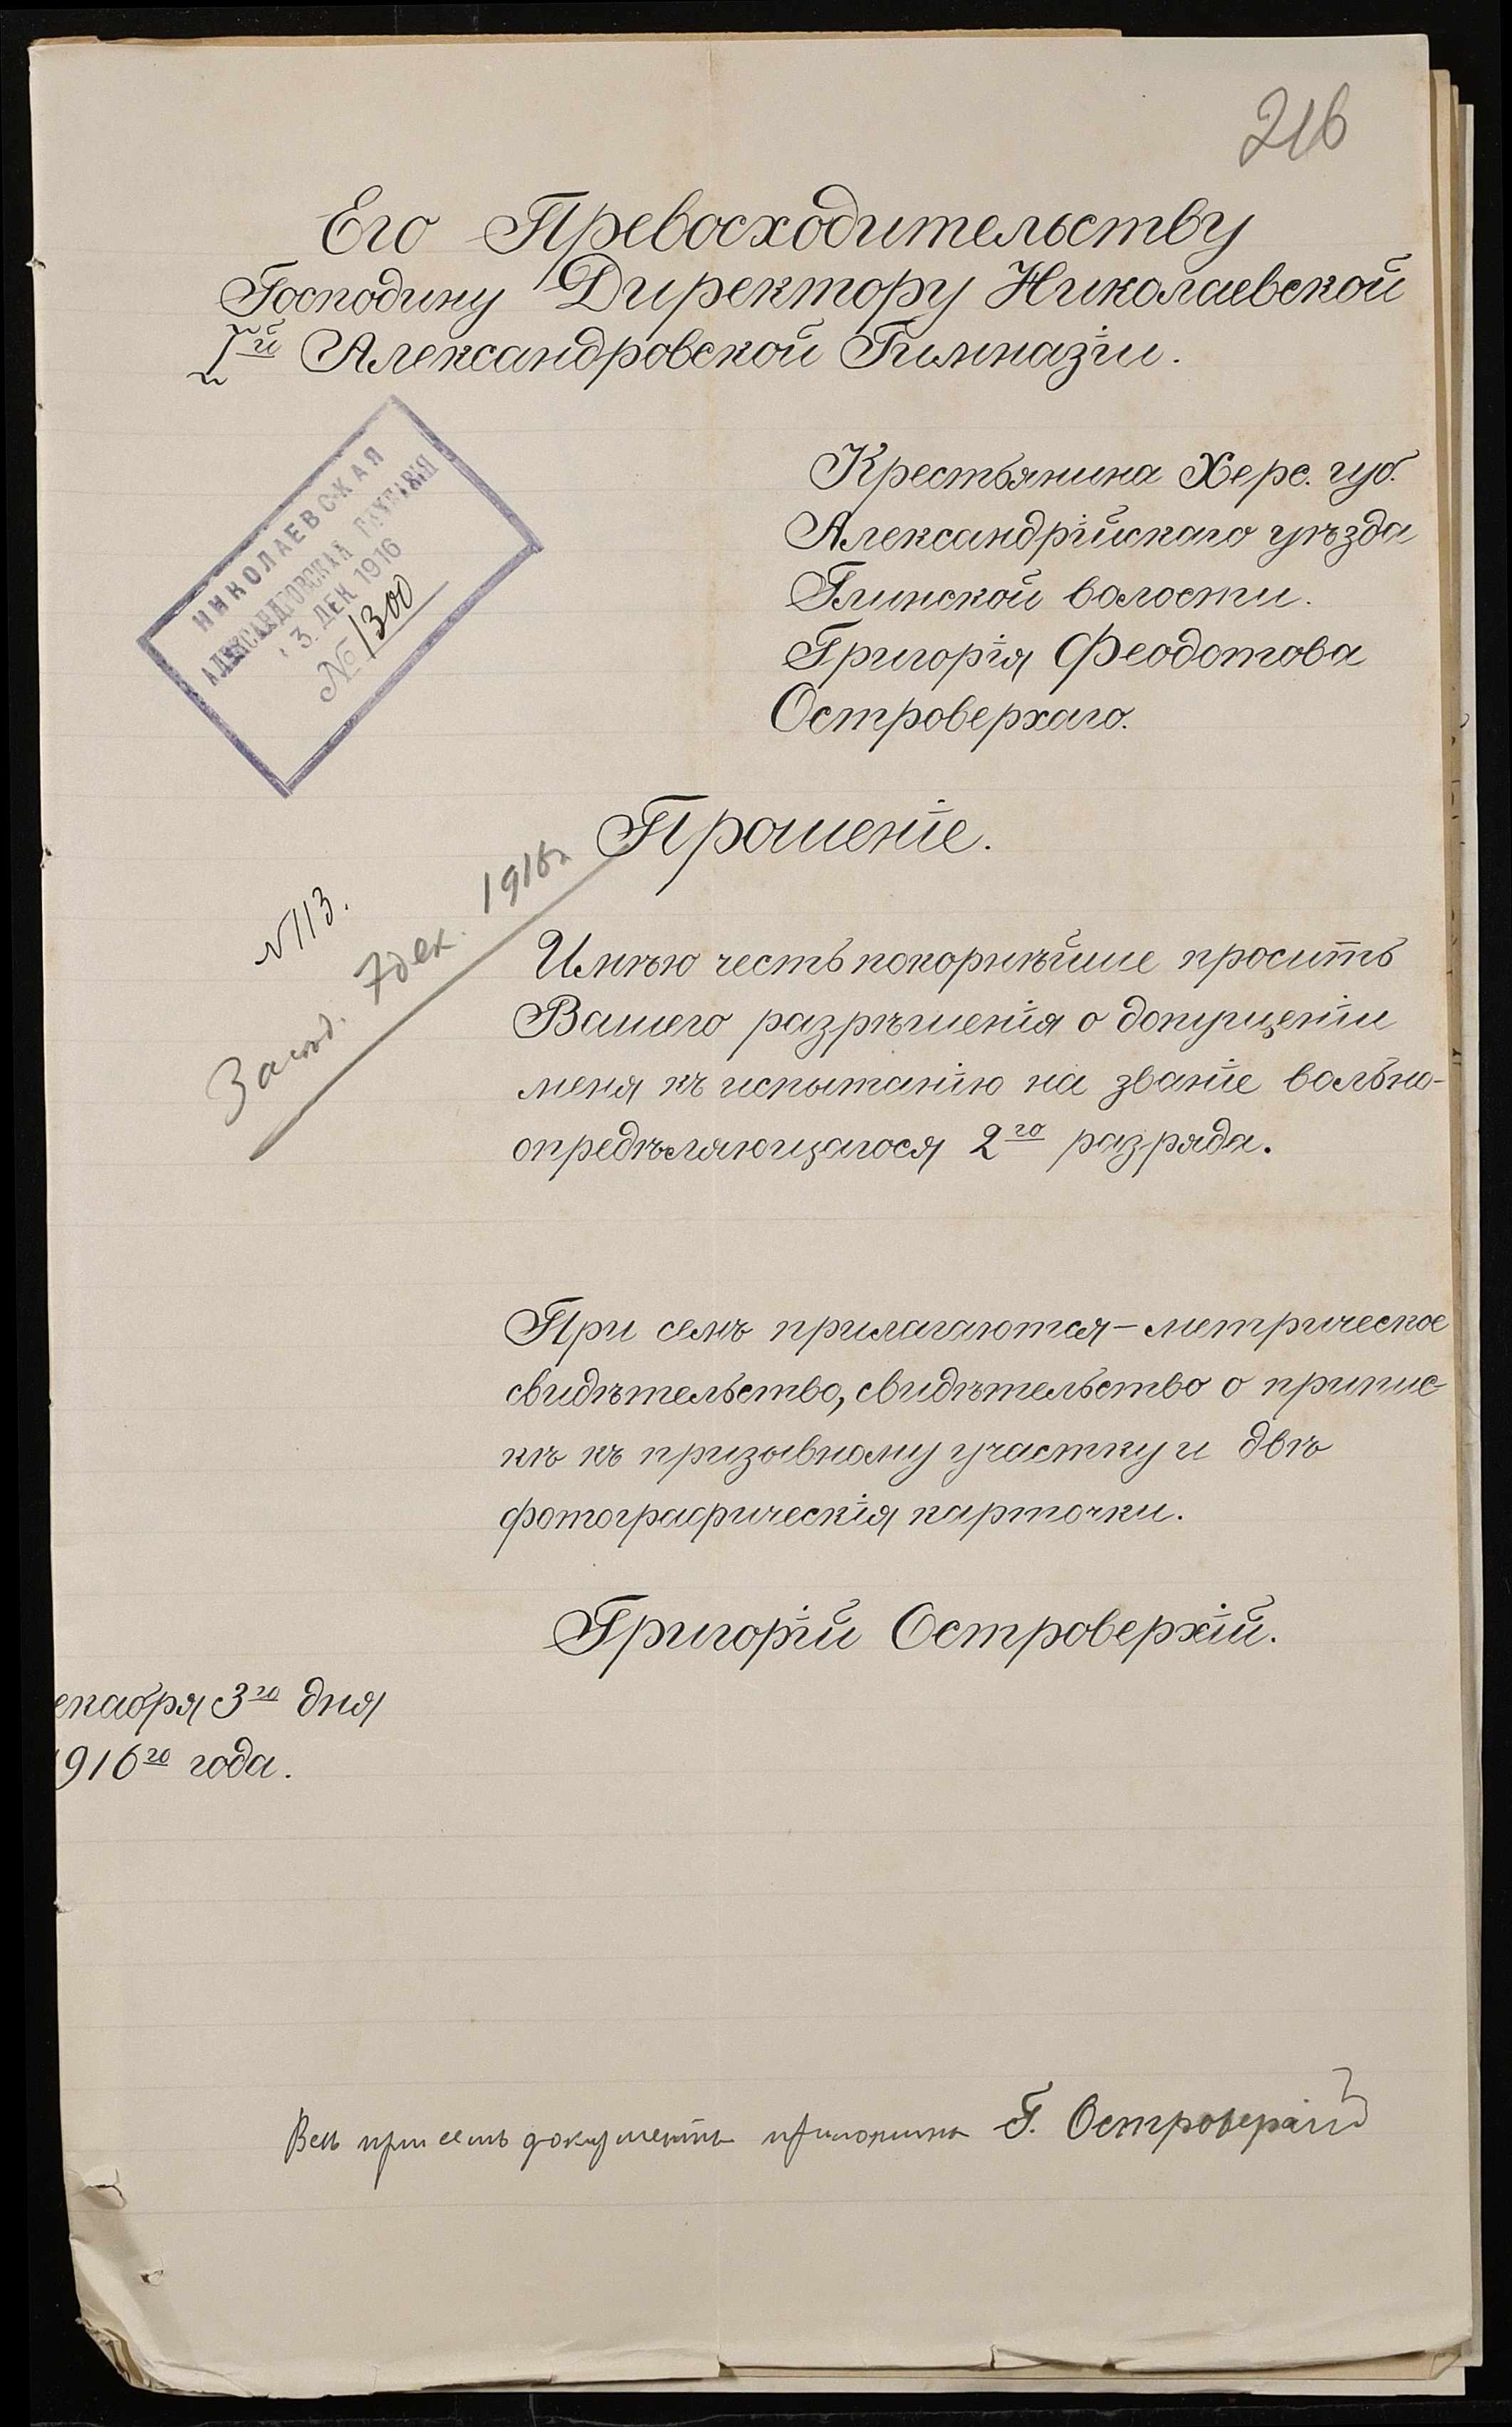 216
Его Превосходительству
Господину Директору Николаевской
Iй Александровской Гимназіи.
НИКОЛАЕВСКАЯ
АЛЕКСАНДРОВСКАЯ ГИМНАЗІЯ
3. ДЕК 1916
№ 1300
Крестьянина Херс. губ.
Александрійскаго уѣзда
Глинской волости.
Григорія Феодотова
Островерхаго.
Прошеніе.
N113.
Засѣд. 7 дек. 1916 г
Имѣю честь покорнѣйше просить
Вашего разрѣшенія о допущеніи
меня къ испытанію на званіе вольно-
опредѣляющагося 2го разряда.
При семъ прилагаются – метрическое
свидѣтельство, свидѣтельство о припис-
кѣ къ призывному участку и двѣ
фотографическія карточки.
Григорій Островерхій.
екабря 3го дня
1916го года.
при семъ документы Г. Островерхій